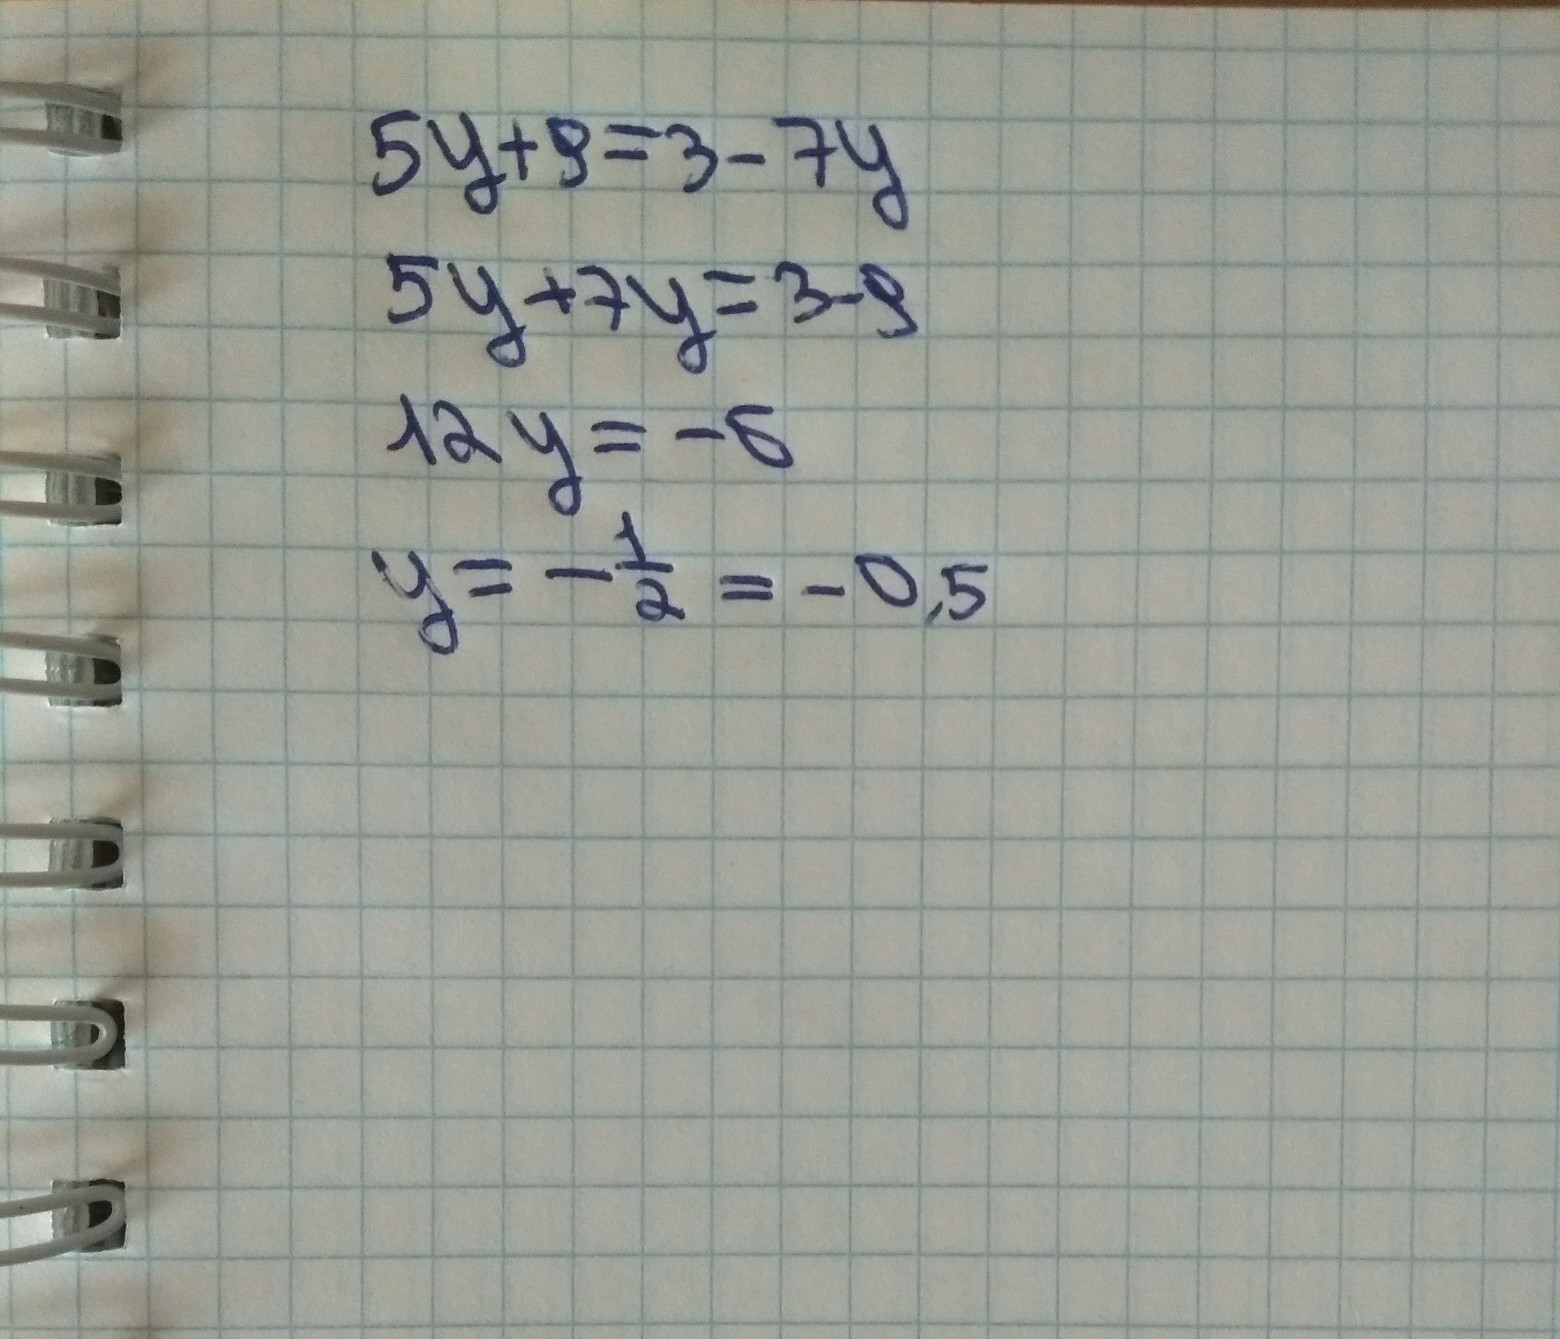 5y+9=3-7y
5y+7y=3-9
12y=-6
y=-1/2=-0,5